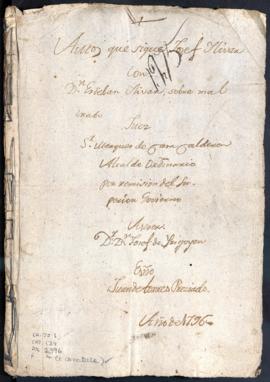 Autos que sigue Josef Olivza
con
Dn. Esteban Olivan, sobre mal
trato
Juez
Sr. Marques de Casa Calderon
Alcalde Ordinario
por remision del Su-
perior Govierno
Asesor
D. Dn. Josef de Yrigoyen
Esno.
Juan de Torres Preziado
Año de 1796